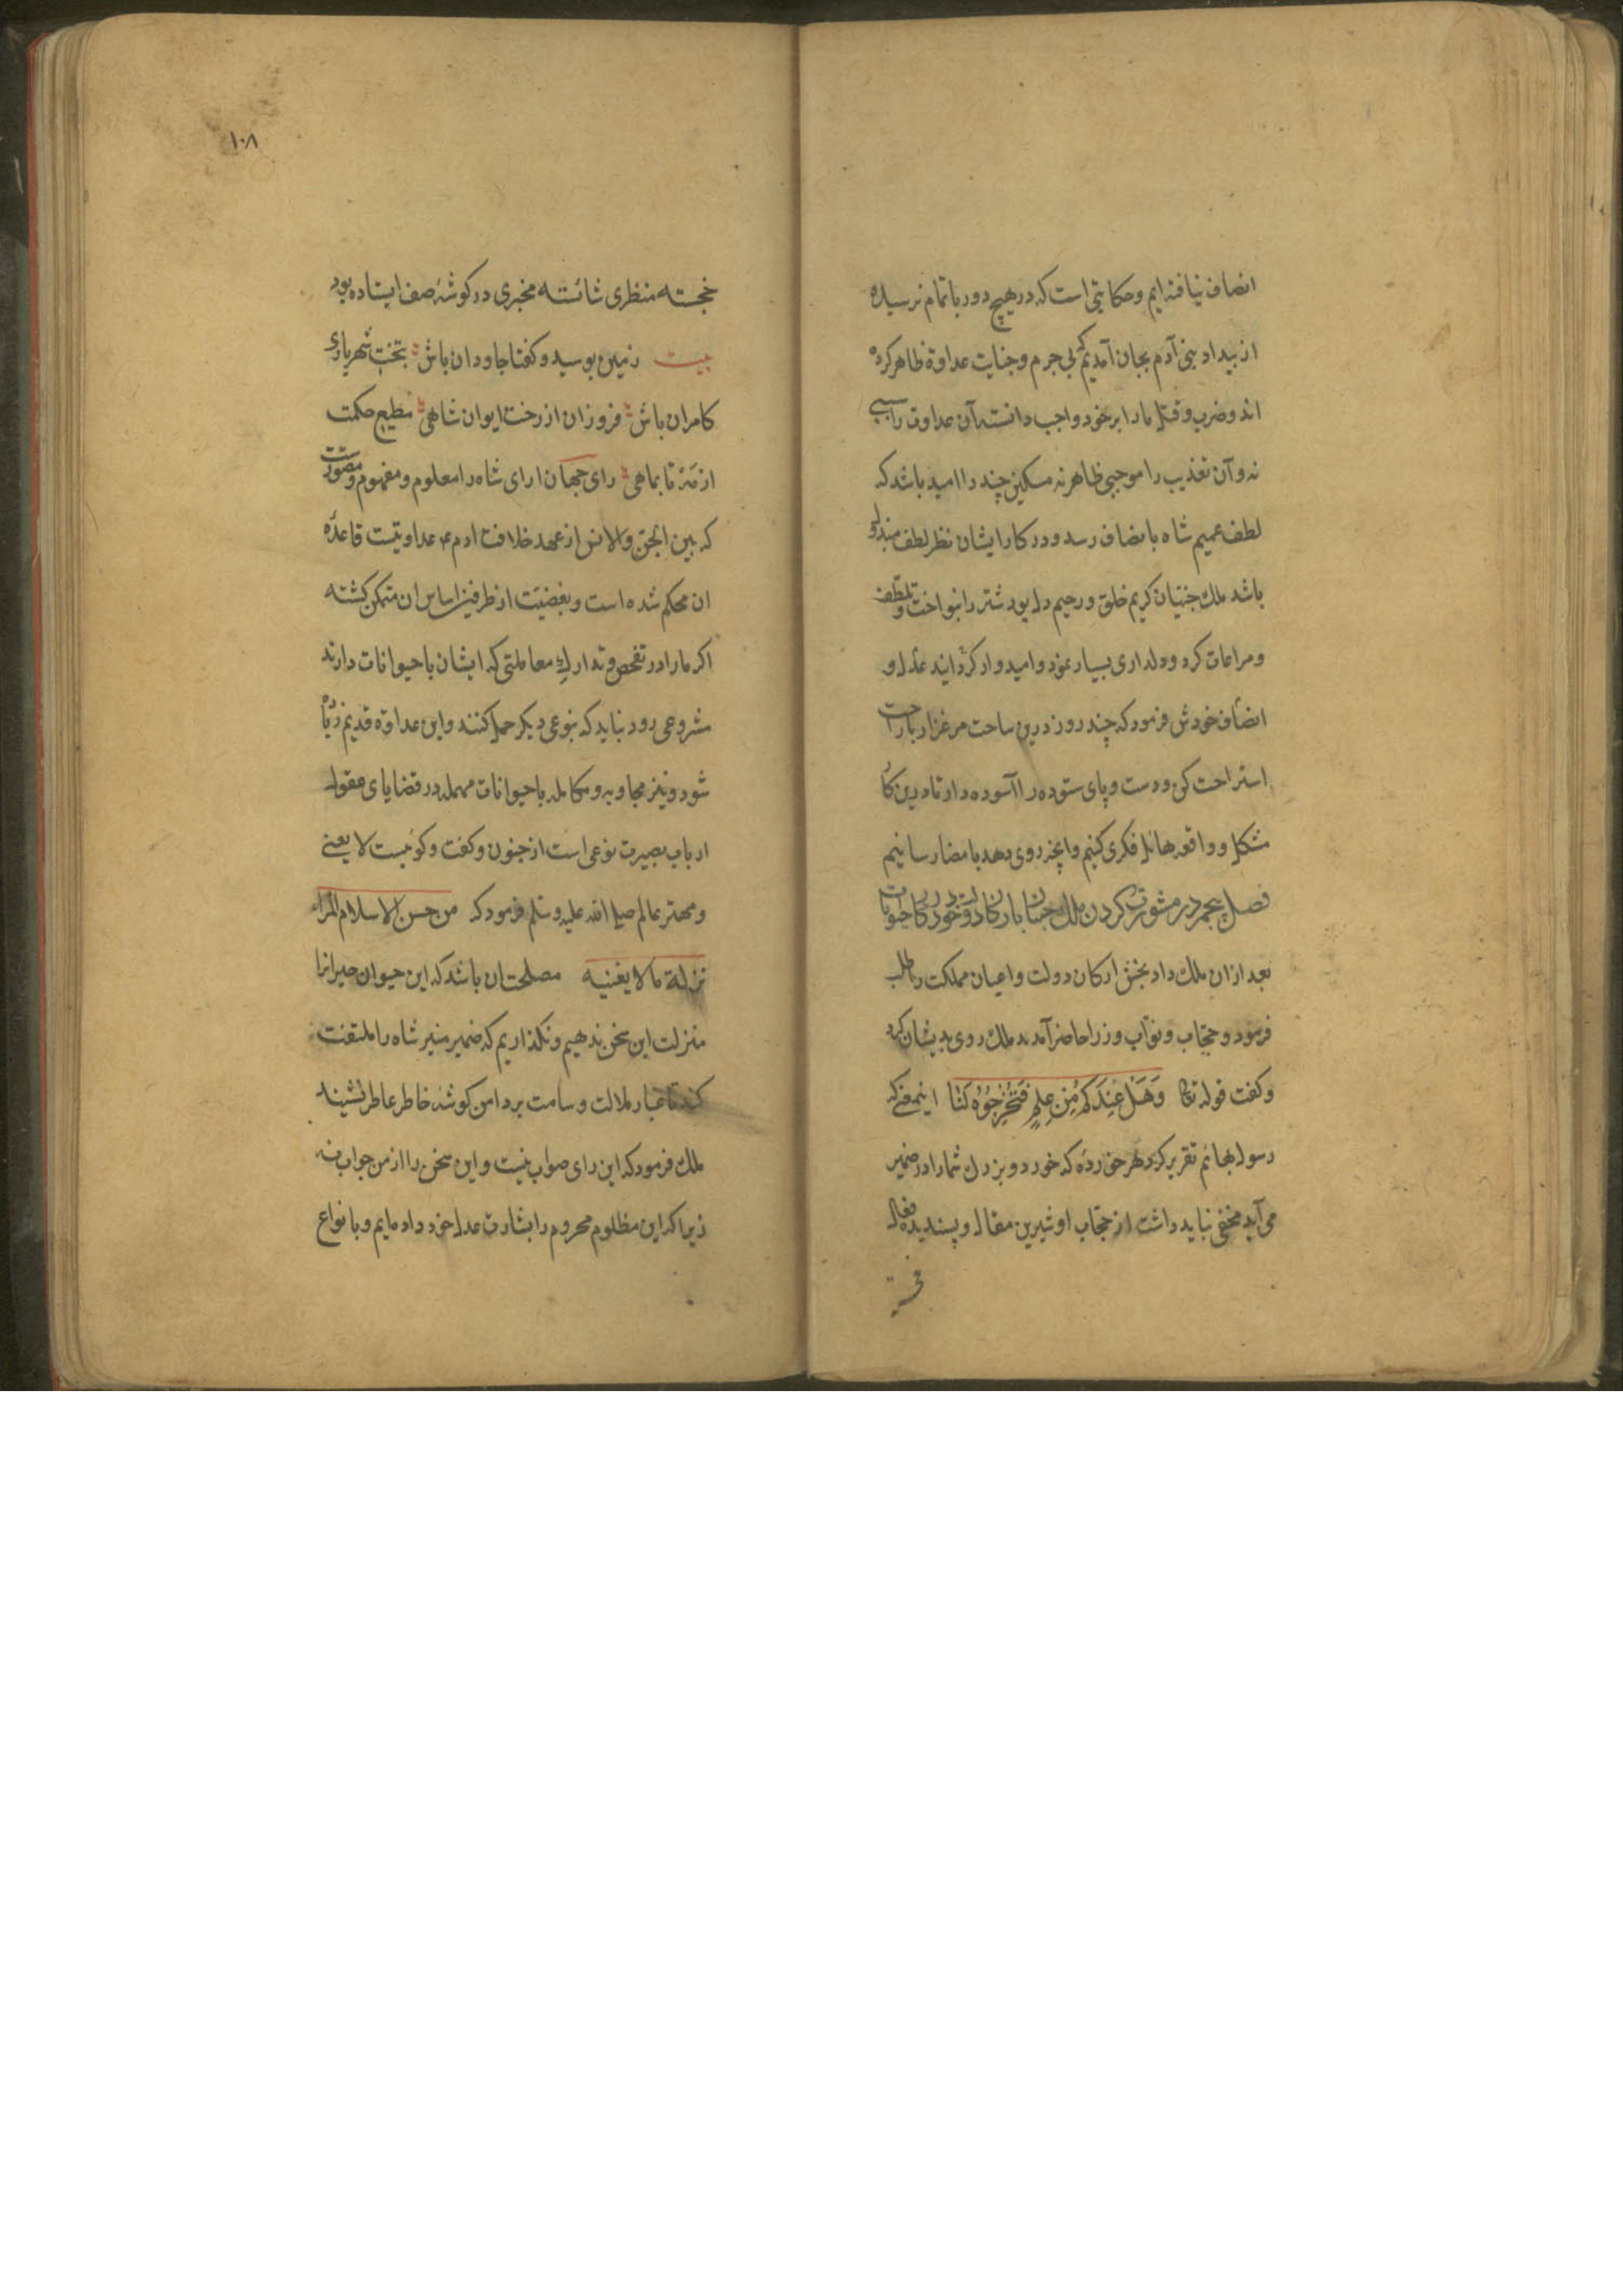 انصاف نیافته ایم و حکایتی است که در هیچ دور باتمام نرسیده
از بیداد بنی آدم بجان آمدیم که بی جرم و جنایت عداوة ظاهر کرده
اند و ضرب و قتل ما را بر خود واجب دانسته آن عداوت را سببی
نه و آن تعذیب را موجبی ظاهر نه مسکینی چند را امید باشد که
لطف عمیم شاه بانصاف رسد و در کار ایشان نظر لطف مبذول
باشد ملک جنیان کریم خلق و رحیم دل بود شتر را بنواخت و تلطف
و مراعات کرد و دلداری بسیار نمود و امیدوار کردانید عدل و
انصاف خودش فرمود که چند روز درین ساحت مرغزار باراحت
استراحت کن و دست و پای ستوده را آسوده دار تا درین کار
مشکل و واقعه هائل فکری کنیم و آنچه روی دهد بامضا رسانیم
فصل پنجم در مشورت کردن ملک جنیان با ارکان دولت خود در کار حیوانات
بعد از ان ملک داد بخش ارکان دولت و اعیان مملکت را طلب
فرمود و حجاب و نواب و وزرا حاضر آمدند ملک روی بدیشان کرد
و کفت قوله تعا وَهَلْ عِنْدَكُم مِّن عِلمٍ فَتُخْرِجُوْهُ لَنَا اینمعنی که
رسول بهائم تقریر کرد هر خورده که خورد و بزرک شما را در ضمیر
می آید مخفی نباید داشت از حجاب او شیرین مقال و پسندیده فعال
١٠٨
خجسته منظری شائسته مخبری در کوشۀ صف ایستاده بود
بیت زمین بوسید و کفتا جاودان باش بتخت شهریاری
کامران باش فروزان از رخت ایوان شاهی مطیع حکمت
از مه تا بماهی رای جهان ارای شاه را معلوم و مفهوم و مصورست
که بین الجن والانس از عهد خلافت ادم ع عداوتیست قاعدۀ
ان محکم شده است و بغضیت از طرفین اساس ان متمکن کشته
اکر ما را در تفحص و تدارک معاملتی که ایشان با حیوانات دارند
مشروعی رود نباید که بنوعی دیکر حمل کنند و این عداوة قدیم زیاده
شود و نیز مجاوبه و مکامله با حیوانات مهمله در قضایای معقول
ارباب بصیرت نوعی است از جنون و کفت و کوئیست لا یعنی
و مهتر عالم صلی الله علیه و سلم فرمود که من حسن الاسلام المراء
ترلة ما لا یعنیه مصلحت ان باشد که این حیوان حیرانرا
منزلت این سخن ندهیم و نکذاریم که ضمیر منیر شاه را ملتفت
کند تا غبار ملالت و سامت بر دامن کوشۀ خاطر عاطر نشیند
ملک فرمود که این رای صواب نیست و این سخن را از من جواب نه
زیرا که این مظلوم محروم را بشارت عدل خود داده ایم و بانواع